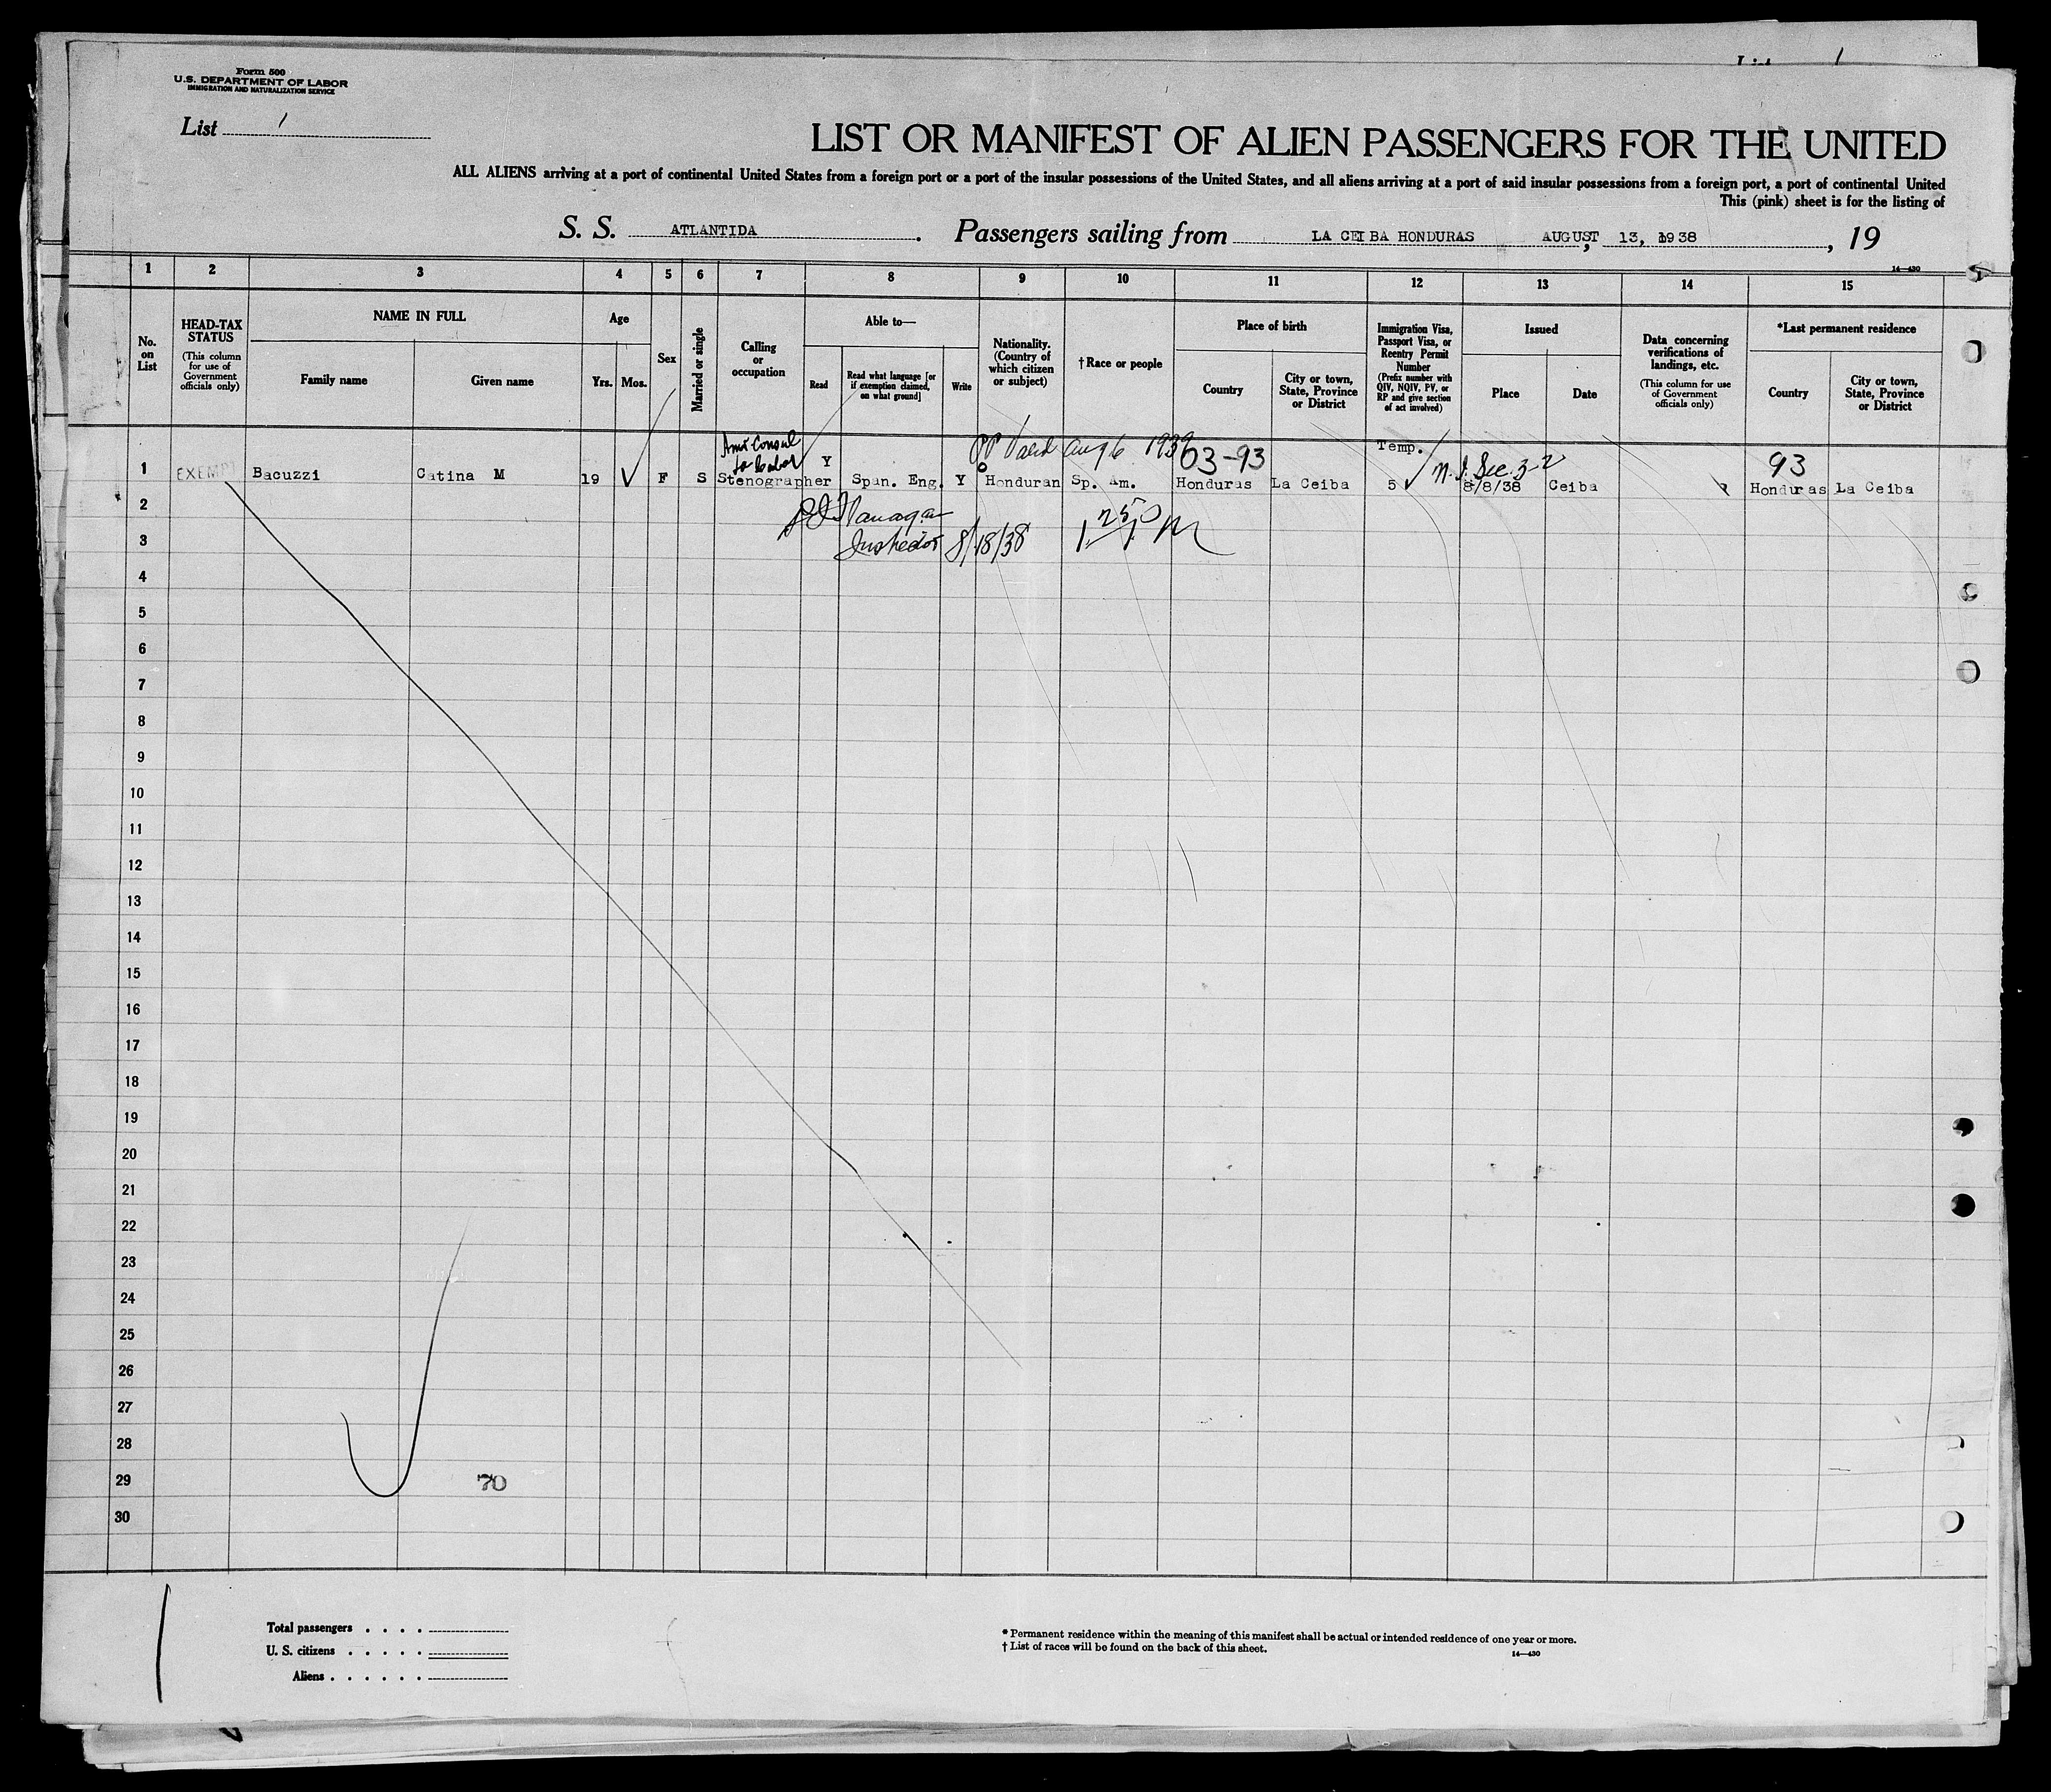 List 1
Form 500
U.S. DEPARTMENT OF LABOR
IMMIGRATION AND NATURALIZATION SERVICE
List 1
LIST OR MANIFEST OF ALIEN PASSENGERS FOR THE UNITED
ALL ALIENS arriving at a port of continental United States from a foreign port or a port of the insular possessions of the United States, and all aliens arriving at a port of said insular possessions from a foreign port, a port of continental United
This (pink) sheet is for the listing of
S. S. ATLANTIDA. Passengers sailing from LA CEIBA HONDURAS AUGUST, 13, 1938, 19
14—430
1 2 3 4 5 6 7 8 9 10 11 12 13 14 15
No. on List
HEAD-TAX STATUS
(This column for use of Government officials only)
NAME IN FULL
Family name
Given name
Age
Yrs. Mos.
Sex
Married or single
Calling or occupation
Able to—
Read
Read what language [or if exemption claimed, on what ground]
Write
Nationality. (Country of which citizen or subject)
†Race or people
Place of birth
Country
City or town, State, Province or District
Immigration Visa, Passport Visa, or Reentry Permit Number
(Prefix number with QIV, NQIV, PV, or RP and give section of act involved)
Issued
Place
Date
Data concerning verifications of landings, etc.
(This column for use of Government officials only)
*Last permanent residence
Country
City or town, State, Province or District
Amr Consul PP Valid Aug 6 1939 63-93 Temp. N.I. Sec. 3-2 93
1 EXEMPT Bacuzzi Catina M 19 F S Stenographer Y Span. Eng. Y Honduran Sp. Am. Honduras La Ceiba 5 8/8/38 Ceiba Honduras La Ceiba
2
3 Inspector 8/18/38
4
5
6
7
8
9
10
11
12
13
14
15
16
17
18
19
20
21
22
23
24
25
26
27
28
29 70
30
Total passengers . . . .
U. S. citizens . . . . .
Aliens . . . . . .
* Permanent residence within the meaning of this manifest shall be actual or intended residence of one year or more.
† List of races will be found on the back of this sheet.
14—430